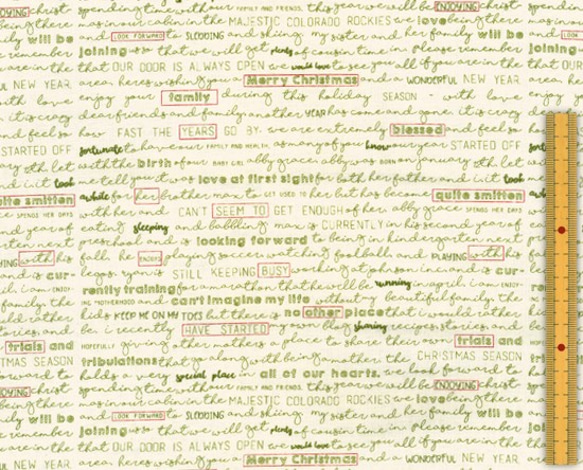 spending time with our FAMILY AND FRIENDS. this year we will be ENJOYING christ
mas in our cabin in the MAJESTIC COLORADO ROCKIES we love being there
and LOOK FORWARD to SLEDDING and skiing my sister and her family will be
joining us so that we will get plenty of cousin time in. please remember
that OUR DOOR IS ALWAYS OPEN we would love to see you if you are in the
area. here's wishing you a Merry Christmas and a WONDERFUL NEW YEAR.
enjoy your family during this holiday SEASON - with love
dear friends and family another YEAR has come and gone. it is crazy
how FAST THE YEARS GO BY. we are extremely blessed and feel so
fortunate to have our FAMILY AND HEALTH, as many of you know our year STARTED OFF
with the birth of our BABY GIRL abby grace. abby was BORN on january 9th. let
me tell you it was love at first sight for both her father and i. it took
awhile for her brother max to GET USED TO her but has become quite smitten
with her and CAN'T SEEM TO GET ENOUGH of her. abby grace SPENDS HER DAYS
eating sleeping and babbling. max is CURRENTLY in his second year of
preschool and is looking forward to being in kindergarten next
fall. he ENJOYS playing soccer, watching football, and PLAYING with his
legos. ryan is STILL KEEPING BUSY working at johnson inc. and is cur-
rently training for a marathon that he will be running in april. i am ENJOY-
ING MOTHERHOOD and can't imagine my life without my beautiful family. the
kids KEEP ME ON MY TOES but there is no other place that i would rather
be. i recently HAVE STARTED my own blog sharing recipes, stories, and
HOPEFULLY giving other mothers a place to share their own trials and
tribulations that go along with being a mother. the CHRISTMAS SEASON
holds a very special place in all of our hearts. we look forward to
spending time with our FAMILY AND FRIENDS. this year we will be ENJOYING christ
mas in our cabin in the MAJESTIC COLORADO ROCKIES we love being there
and LOOK FORWARD to SLEDDING and skiing my sister and her family will be
joining us so that we will get plenty of cousin time in. please remember
that OUR DOOR IS ALWAYS OPEN we would love to see you if you are in the
area. here's wishing you a Merry Christmas and a WONDERFUL NEW YEAR.